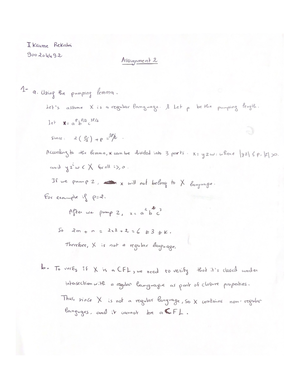 Assignment 2
1- a. Using the pumping lemma.
Let's assume X is a regular language. & Let p be the pumping length.
Let
According to the lemma, x can be divided into 3 parts x = yzw, where
and y z^i w ∈ X for all i ≥ 0.
If we pump z, x will not belong to X language.
For example if p=2.
After we pump z,
So
Therefore, X is not a regular language.
b. To verify if X is a CFL, we need to verify that it's closed under
intersection with a regular language as part of closure properties.
Thus since X is not a regular language, so X contains non-regular
languages, and it cannot be a CFL.